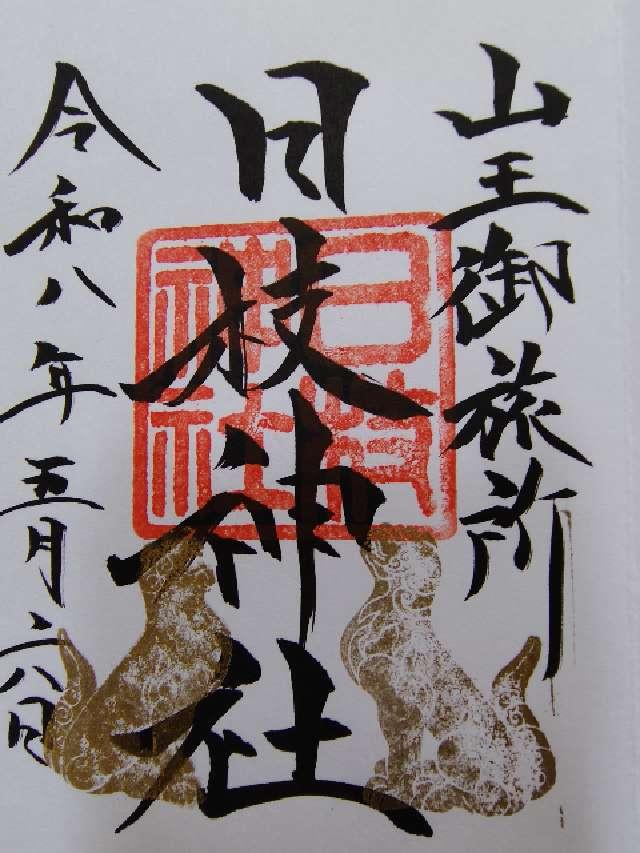 山王御旅所
日枝神社
日枝
神社
令和八年五月六日